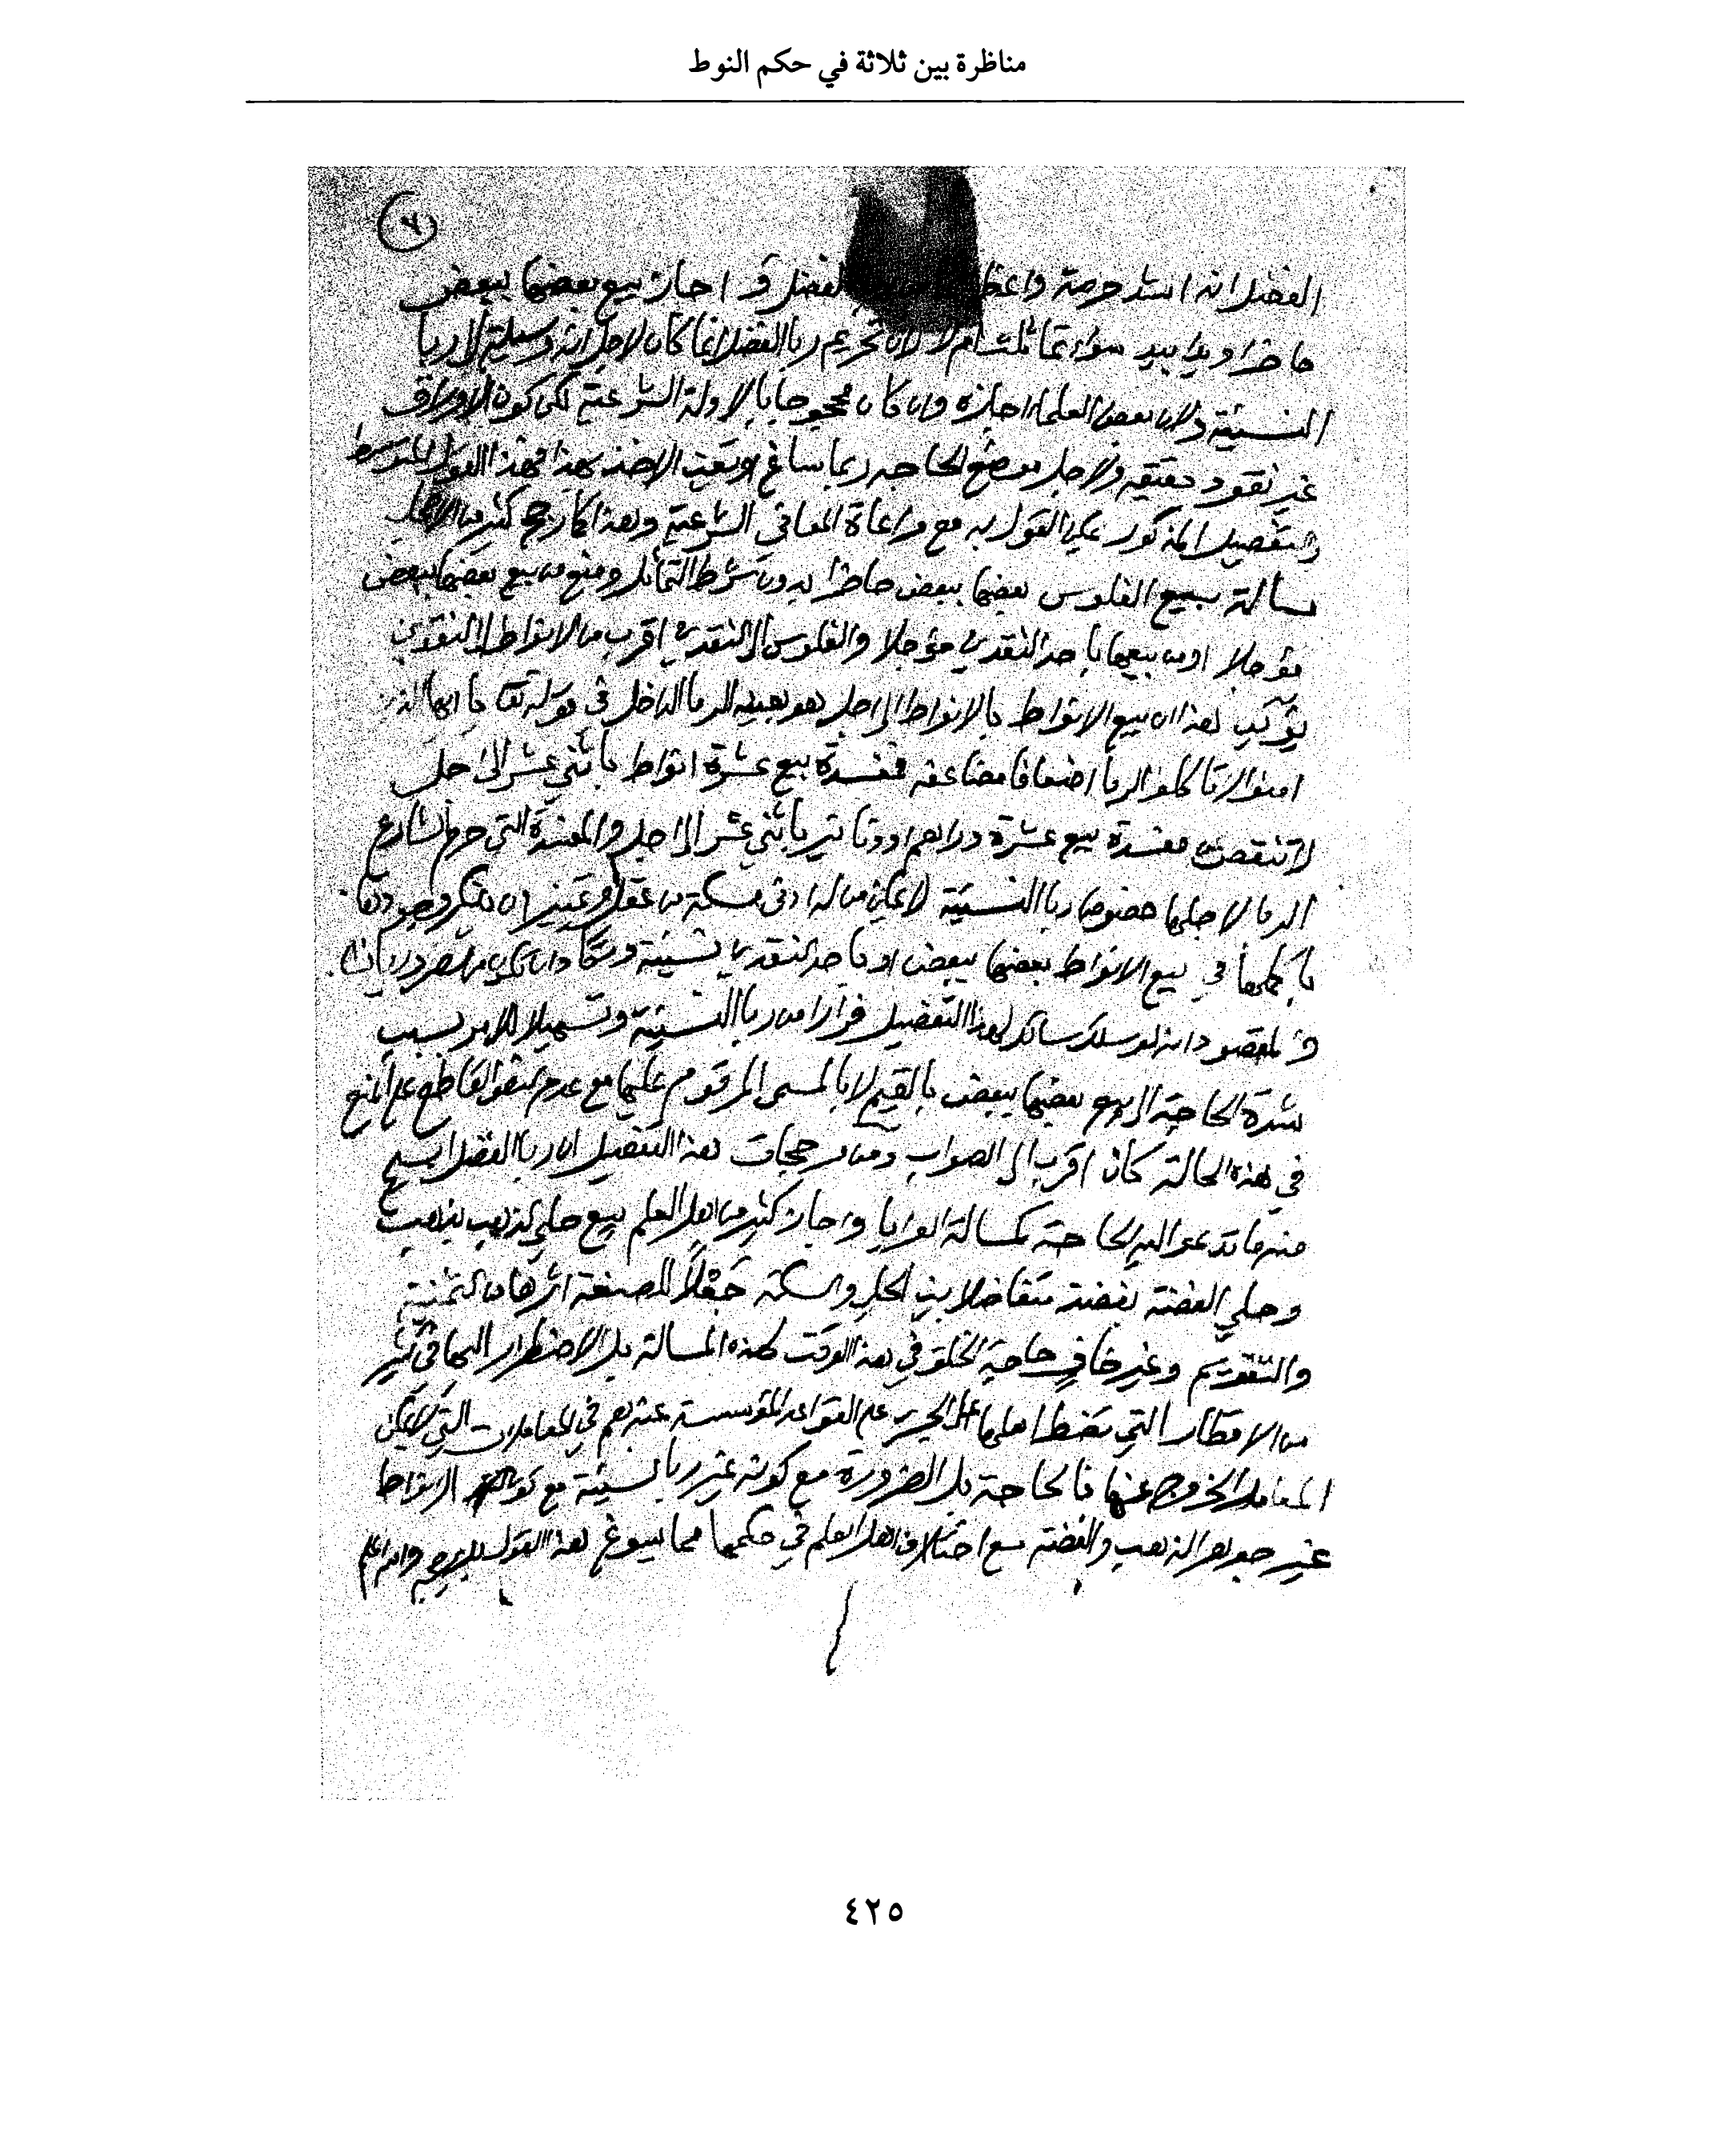 مناظرة بين ثلاثة في حكم النوط
الفضل انه اشد حرمة واعظم الفضل و اجاز بيع بعضها ببعض
حاضرا ويدا بيد سواء تماثلت ام لا لان تحريم ربا الفضل انما كان لاجل انه وسيلة الى ربا
النسيئة ولان بعض العلماء اجازه وان كان محجوجا بالادلة الشرعية لكن كون الاوراق
غير نقود حقيقيه ولاجل موضع الحاجه ربما ساغ الاخذ بهذا فهذا القول المتوسط
والتفصيل المذكور يمكن القول به مع مراعاة المعاني الشرعية وهذا كما رجح كثير من
مسالة بيع الفلوس بعضها ببعض حاضرا بدون شرط التماثل ومنع من بيع بعضها ببعض
مؤجلا او من بيعها باحد النقدين مؤجلا والفلوس الى النقدين اقرب من الانواط الى النقدين
يؤيد هذا ان بيع الانواط بالانواط الى اجل هو بعينه الربا الداخل في قوله تعا يا ايها الذين
امنوا لا تاكلوا الربا اضعافا مضاعفه فمفسدة بيع عشرة انواط باثني عشر الى اجل
لا تنقص عن مفسدة بيع عشرة دراهم او دنانير باثني عشر الى اجل والمفسدة التي حرم الشارع
الربا لاجلها خصوصا ربا النسيئة لا يمكن من له ادنى مسكة من عقل وتمييز ان ينكر وجودها
باكملها في بيع الانواط بعضها ببعض او باحد النقدين نسيئة
والمقصود انه لو سلك سالك لهذا التفصيل فرارا من ربا النسيئة وتسهيلا للامر بسبب
شدة الحاجة الى بيع بعضها ببعض بالقيم لا بالمسمى المرقوم عليها مع عدم النص القاطع على المنع
في هذه الحالة كان اقرب الى الصواب ومن مرجحات هذا التفصيل ان ربا الفضل ابيح
منه ما تدعو اليه الحاجة كمسالة العرايا واجاز كثير من اهل العلم بيع حلي الذهب بذهب
وحلي الفضة بفضة متفاضلا بين الحلي والسكة جعلاً للصنعة اثرها من الثمنية
والتقويم وغير خافٍ حاجة الخلق في هذا الوقت لهذه المسالة بل الاضطرار اليها في كثير
من الاقطار التي تضطر اهلها الى الجري على القواعد المؤسسة عندهم في المعاملات التي لا يمكن
المعامل الخروج عنها فالحاجة بل الضرورة مع كونه غير ربا نسيئة مع كون الانواط
غير جوهر الذهب والفضة مع اختلاف اهل العلم في حكمها مما يسوغ هذا القول والله اعلم
٤٢٥